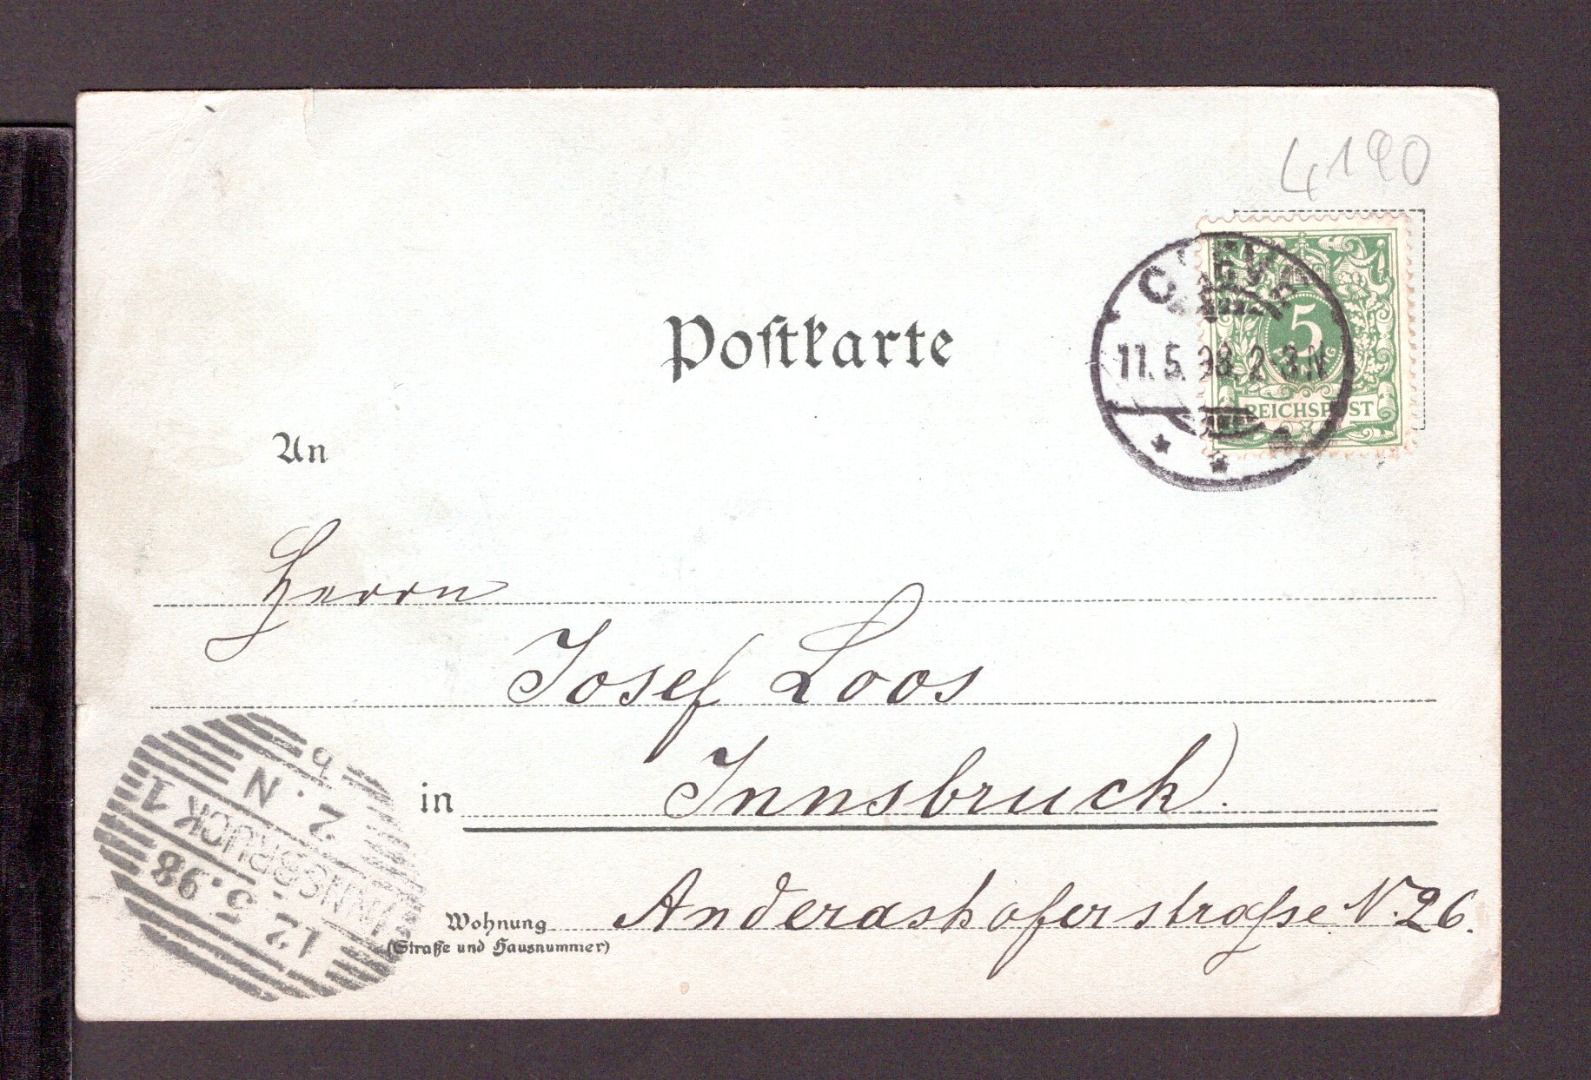 4190
Postkarte
CLEVE
11.5.98.2-3N
5
REICHSPOST
An
Herrn
Josef Loos
in Innsbruck.
Wohnung Anderashoferstraße N. 26.
(Straße und Hausnummer)
INNSBRUCK 1
12.5.98
2.N
b